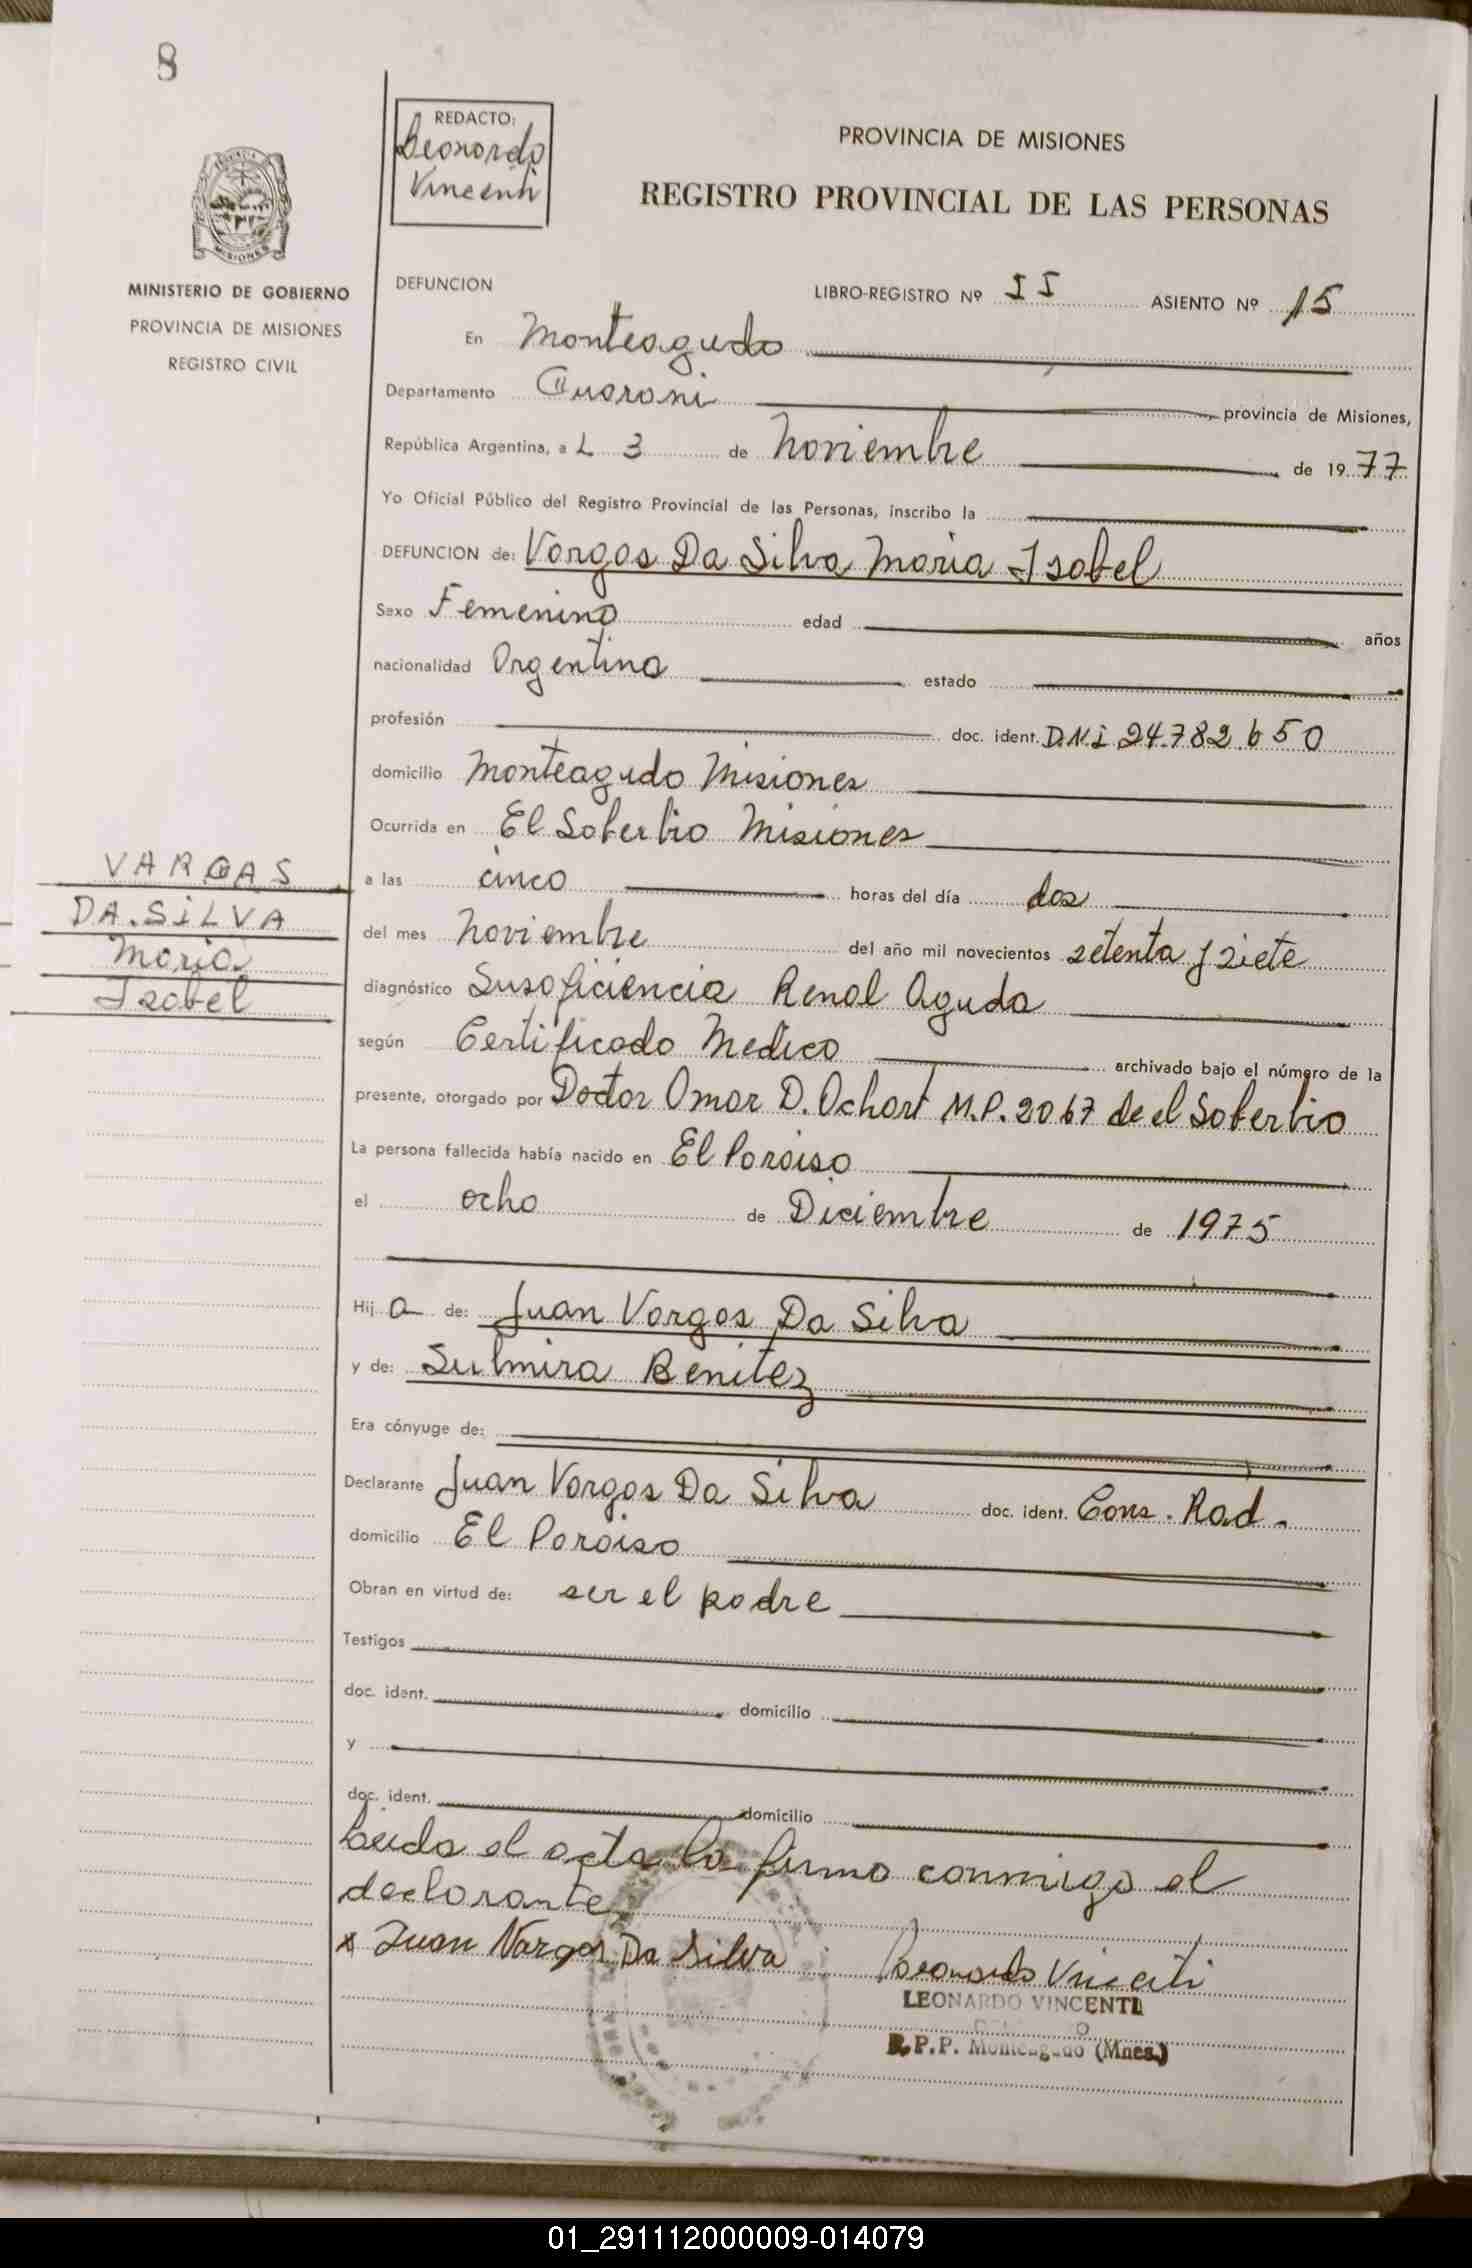 8
REDACTO:
Leonardo
Vincenti
PROVINCIA DE MISIONES
REGISTRO PROVINCIAL DE LAS PERSONAS
MISIONES
MINISTERIO DE GOBIERNO
PROVINCIA DE MISIONES
REGISTRO CIVIL
DEFUNCION LIBRO-REGISTRO Nº II ASIENTO Nº 15
En Monteagudo
Departamento Guarani provincia de Misiones,
República Argentina, a L 3 de Noviembre de 19 77
Yo Oficial Público del Registro Provincial de las Personas, inscribo la
DEFUNCION de: Vargas Da Silva Maria Isabel
Sexo Femenino edad años
nacionalidad Argentina estado
profesión doc. ident. D.N.i 24.782.650
domicilio Monteagudo Misiones
Ocurrida en El Soberbio Misiones
a las cinco horas del día dos
del mes Noviembre del año mil novecientos setenta y siete
diagnóstico Susoficiencia Renal Aguda
según Certificado Medico archivado bajo el número de la
presente, otorgado por Doctor Omar D. Ochart M.P. 2067 de el Soberbio
La persona fallecida había nacido en El Paraiso
el ocho de Diciembre de 1975
Hij a de: Juan Vargas Da Silva
y de: Sulmira Benitez
Era cónyuge de:
Declarante Juan Vargas Da Silva doc. ident. Cons. Rad.
domicilio El Paraiso
Obran en virtud de: ser el padre
Testigos
doc. ident. domicilio
y
doc. ident. domicilio
Leida el acta la firma conmigo el
declarante
x Juan Vargas Da Silva Leonardo Vincenti
LEONARDO VINCENTI
R.P.P. Monteagudo (Mnes.)
VARGAS
DA.SiLVA
Maria
Isabel
01_291112000009-014079